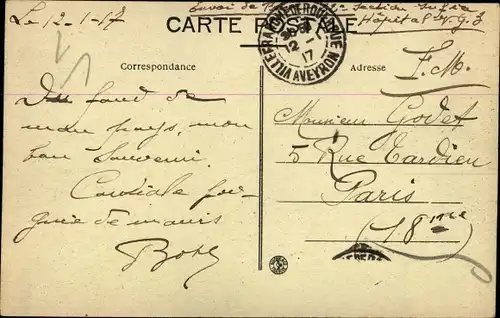 Le 12-1-17
Envoi de
Section
Hôpital N.G. 3
CARTE POSTALE
VILLEFRANCHE-DE-ROUERGUE
12
17
AVEYRON
Correspondance
Adresse
F.M.
Du fond de
mon pays, mon
bon Souvenir.
Cordiale poi-
gnée de mains
Monsieur Godet
5 Rue Tardieu
Paris
(18ème)